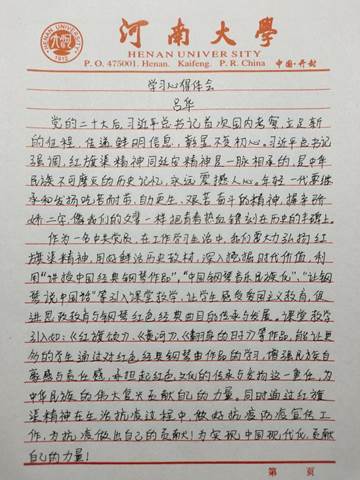 河南大學
HENAN UNIVERSITY
P. O. 475001. Henan. Kaifeng. P. R. China 中国·开封
学习心得体会
吕华
党的二十大后，习近平总书记首次国内考察，立足新
的征程，传递鲜明信息，彰显不变初心。习近平总书记
强调，红旗渠精神同延安精神是一脉相承的，是中华
民族不可磨灭的历史记忆，永远震撼人心。年轻一代要继
承和发扬吃苦耐劳、自力更生、艰苦奋斗的精神，摒弃骄
娇二字，像我们的父辈一样把青春热血镌刻在历史的丰碑上。
作为一名中共党员，在工作学习生活中，我们要大力弘扬红
旗渠精神，用好鲜活历史教材，深入挖掘时代价值，利
用“讲授中国经典钢琴作品”，“中国钢琴音乐民族化”，“让钢
琴说中国话”等引入课堂教学，让学生感受爱国主义教育，促
进思政教育与钢琴红色经典曲目的传承与发展。课堂教学
引入如：《红旗颂》、《黄河》、《翻身的日子》等作品，能让更
多的学生通过对红色经典钢琴曲作品的学习，增强民族自
豪感与责任感，承担起红色文化的传承与发扬这一责任，为
中华民族的伟大复兴贡献自己的力量，同时通过红旗
渠精神在生活抗疫过程中，做好抗疫防疫宣传工
作，为抗疫做出自己的贡献！为实现中国现代化，贡献
自己的力量！
第 页